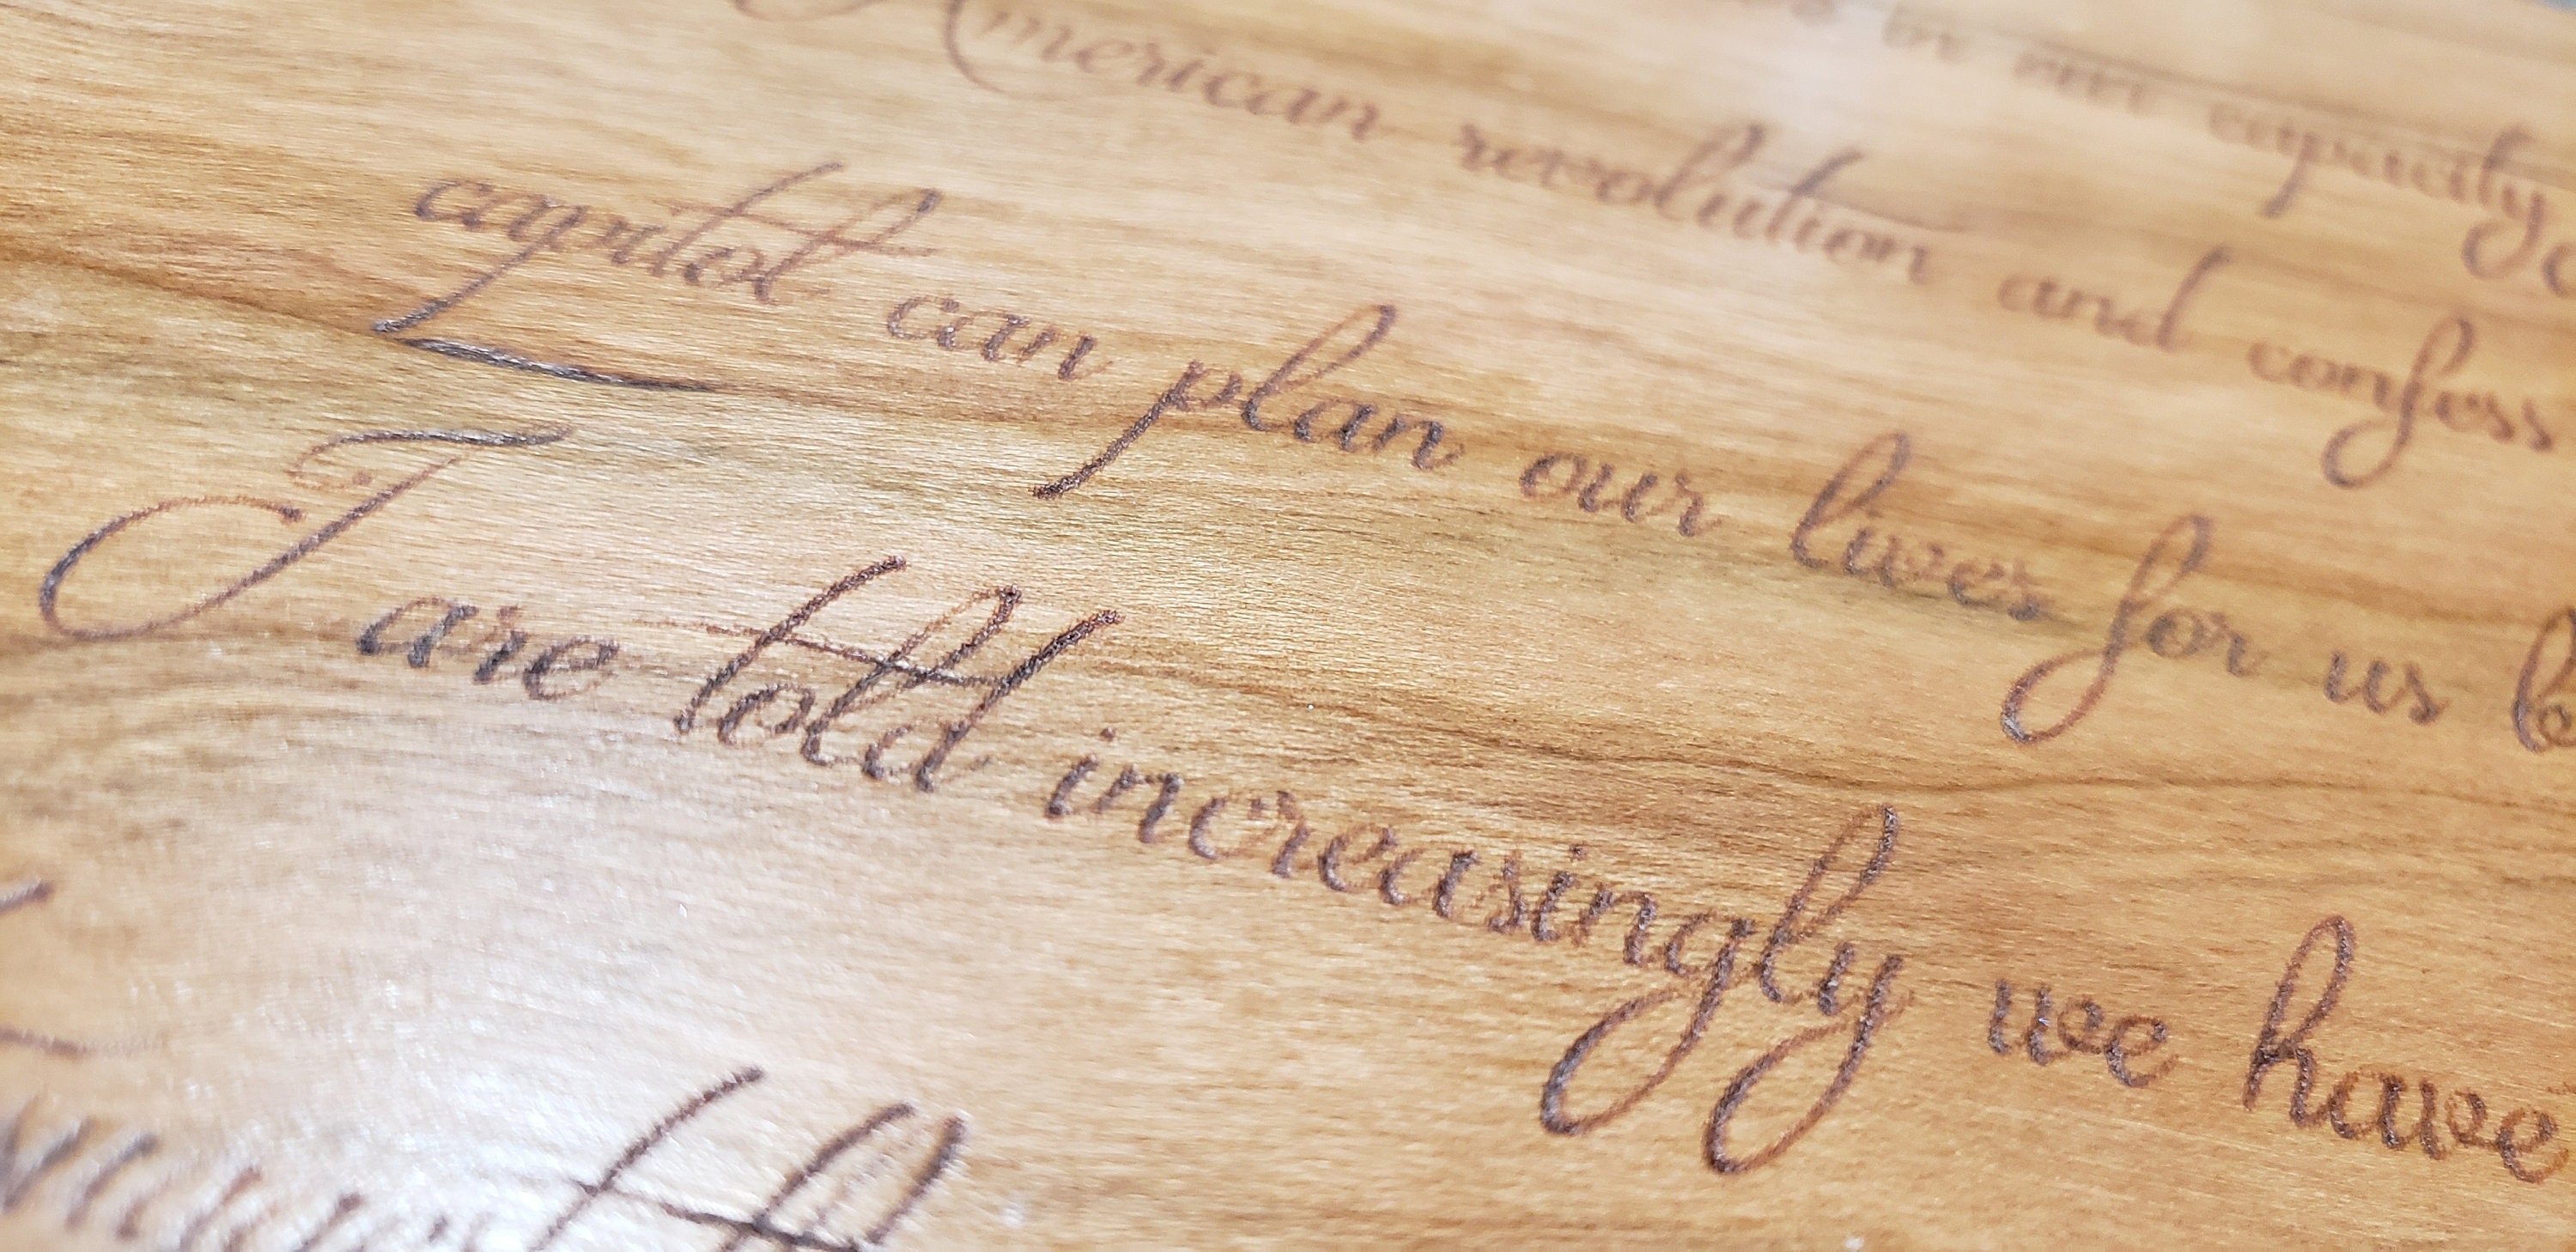 in our capacity
American revolution and confess
capitol can plan our lives for us
I are told increasingly we have